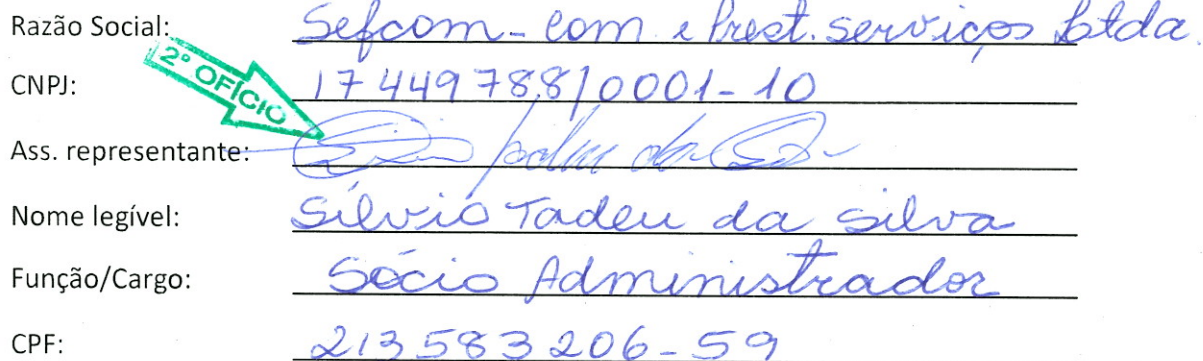 Razão Social: Sefcom - Com e Prest. Serviços Ltda.
CNPJ: 17449788/0001-10
2º OFÍCIO
Ass. representante:
Nome legível: Sílvio Tadeu da Silva
Função/Cargo: Sócio Administrador
CPF: 213583206-59